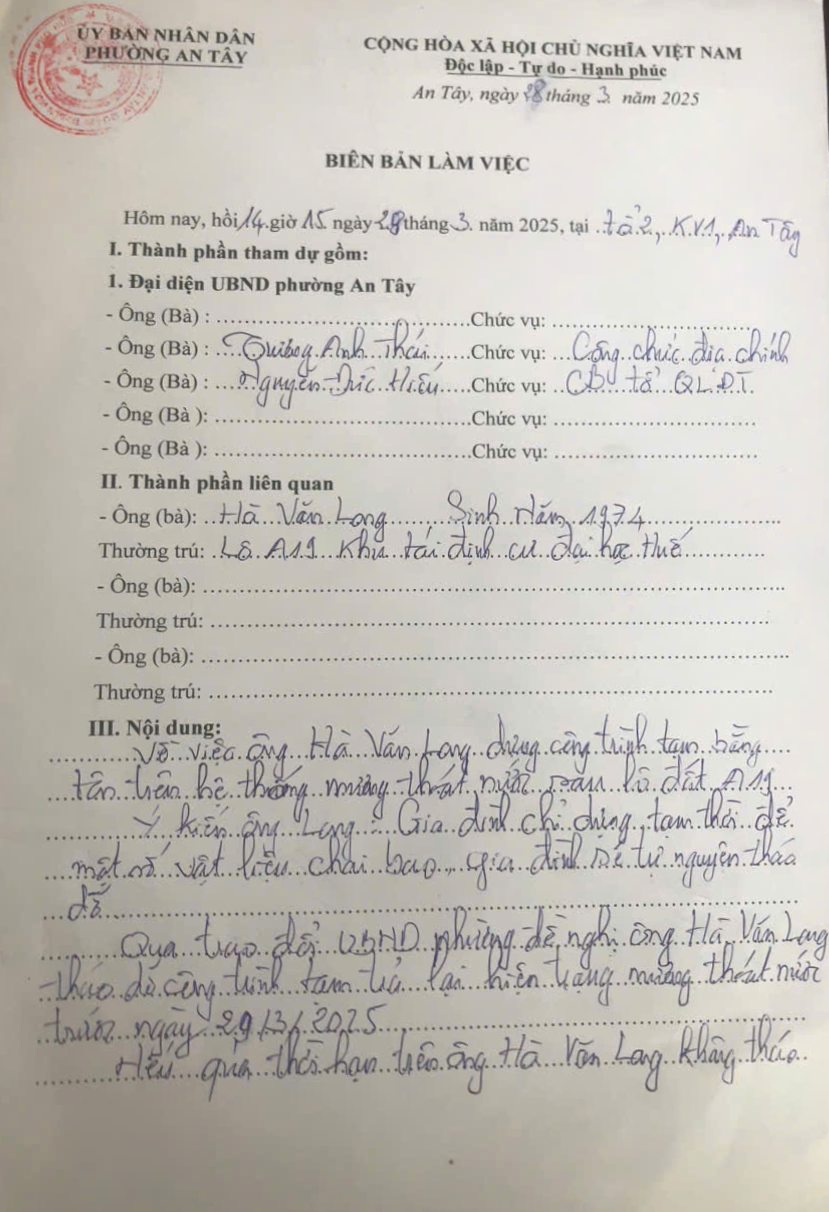 ỦY BAN NHÂN DÂN
PHƯỜNG AN TÂY
CỘNG HÒA XÃ HỘI CHỦ NGHĨA VIỆT NAM
Độc lập - Tự do - Hạnh phúc
An Tây, ngày 28 tháng 3 năm 2025
BIÊN BẢN LÀM VIỆC
Hôm nay, hồi 14 giờ 15 ngày 28 tháng 3 năm 2025, tại tổ 2, KV1, An Tây
I. Thành phần tham dự gồm:
1. Đại diện UBND phường An Tây
- Ông (Bà) : ..... Chức vụ: .....
- Ông (Bà) : Anh Thái Chức vụ: Công chức địa chính
- Ông (Bà) : Nguyễn Đức Hiếu Chức vụ: CB tổ QLĐT
- Ông (Bà ): ..... Chức vụ: .....
- Ông (Bà ): ..... Chức vụ: .....
II. Thành phần liên quan
- Ông (bà): Hà Văn Long Sinh Năm 1974
Thường trú: Lô A19 Khu tái định cư đại học Huế
- Ông (bà): .....
Thường trú: .....
- Ông (bà): .....
Thường trú: .....
III. Nội dung:
Về việc ông Hà Văn Long dựng công trình tạm bằng
tôn trên hệ thống mương thoát nước sau lô đất A19
Ý kiến ông Long : Gia đình chỉ dựng tạm thời để
một số vật liệu chai bao, gia đình sẽ tự nguyện tháo
dỡ
Qua trao đổi UBND phường đề nghị ông Hà Văn Long
tháo dỡ công trình tạm trả lại hiện trạng mương thoát nước
trước ngày 29/3/2025
Nếu quá thời hạn trên ông Hà Văn Long không tháo